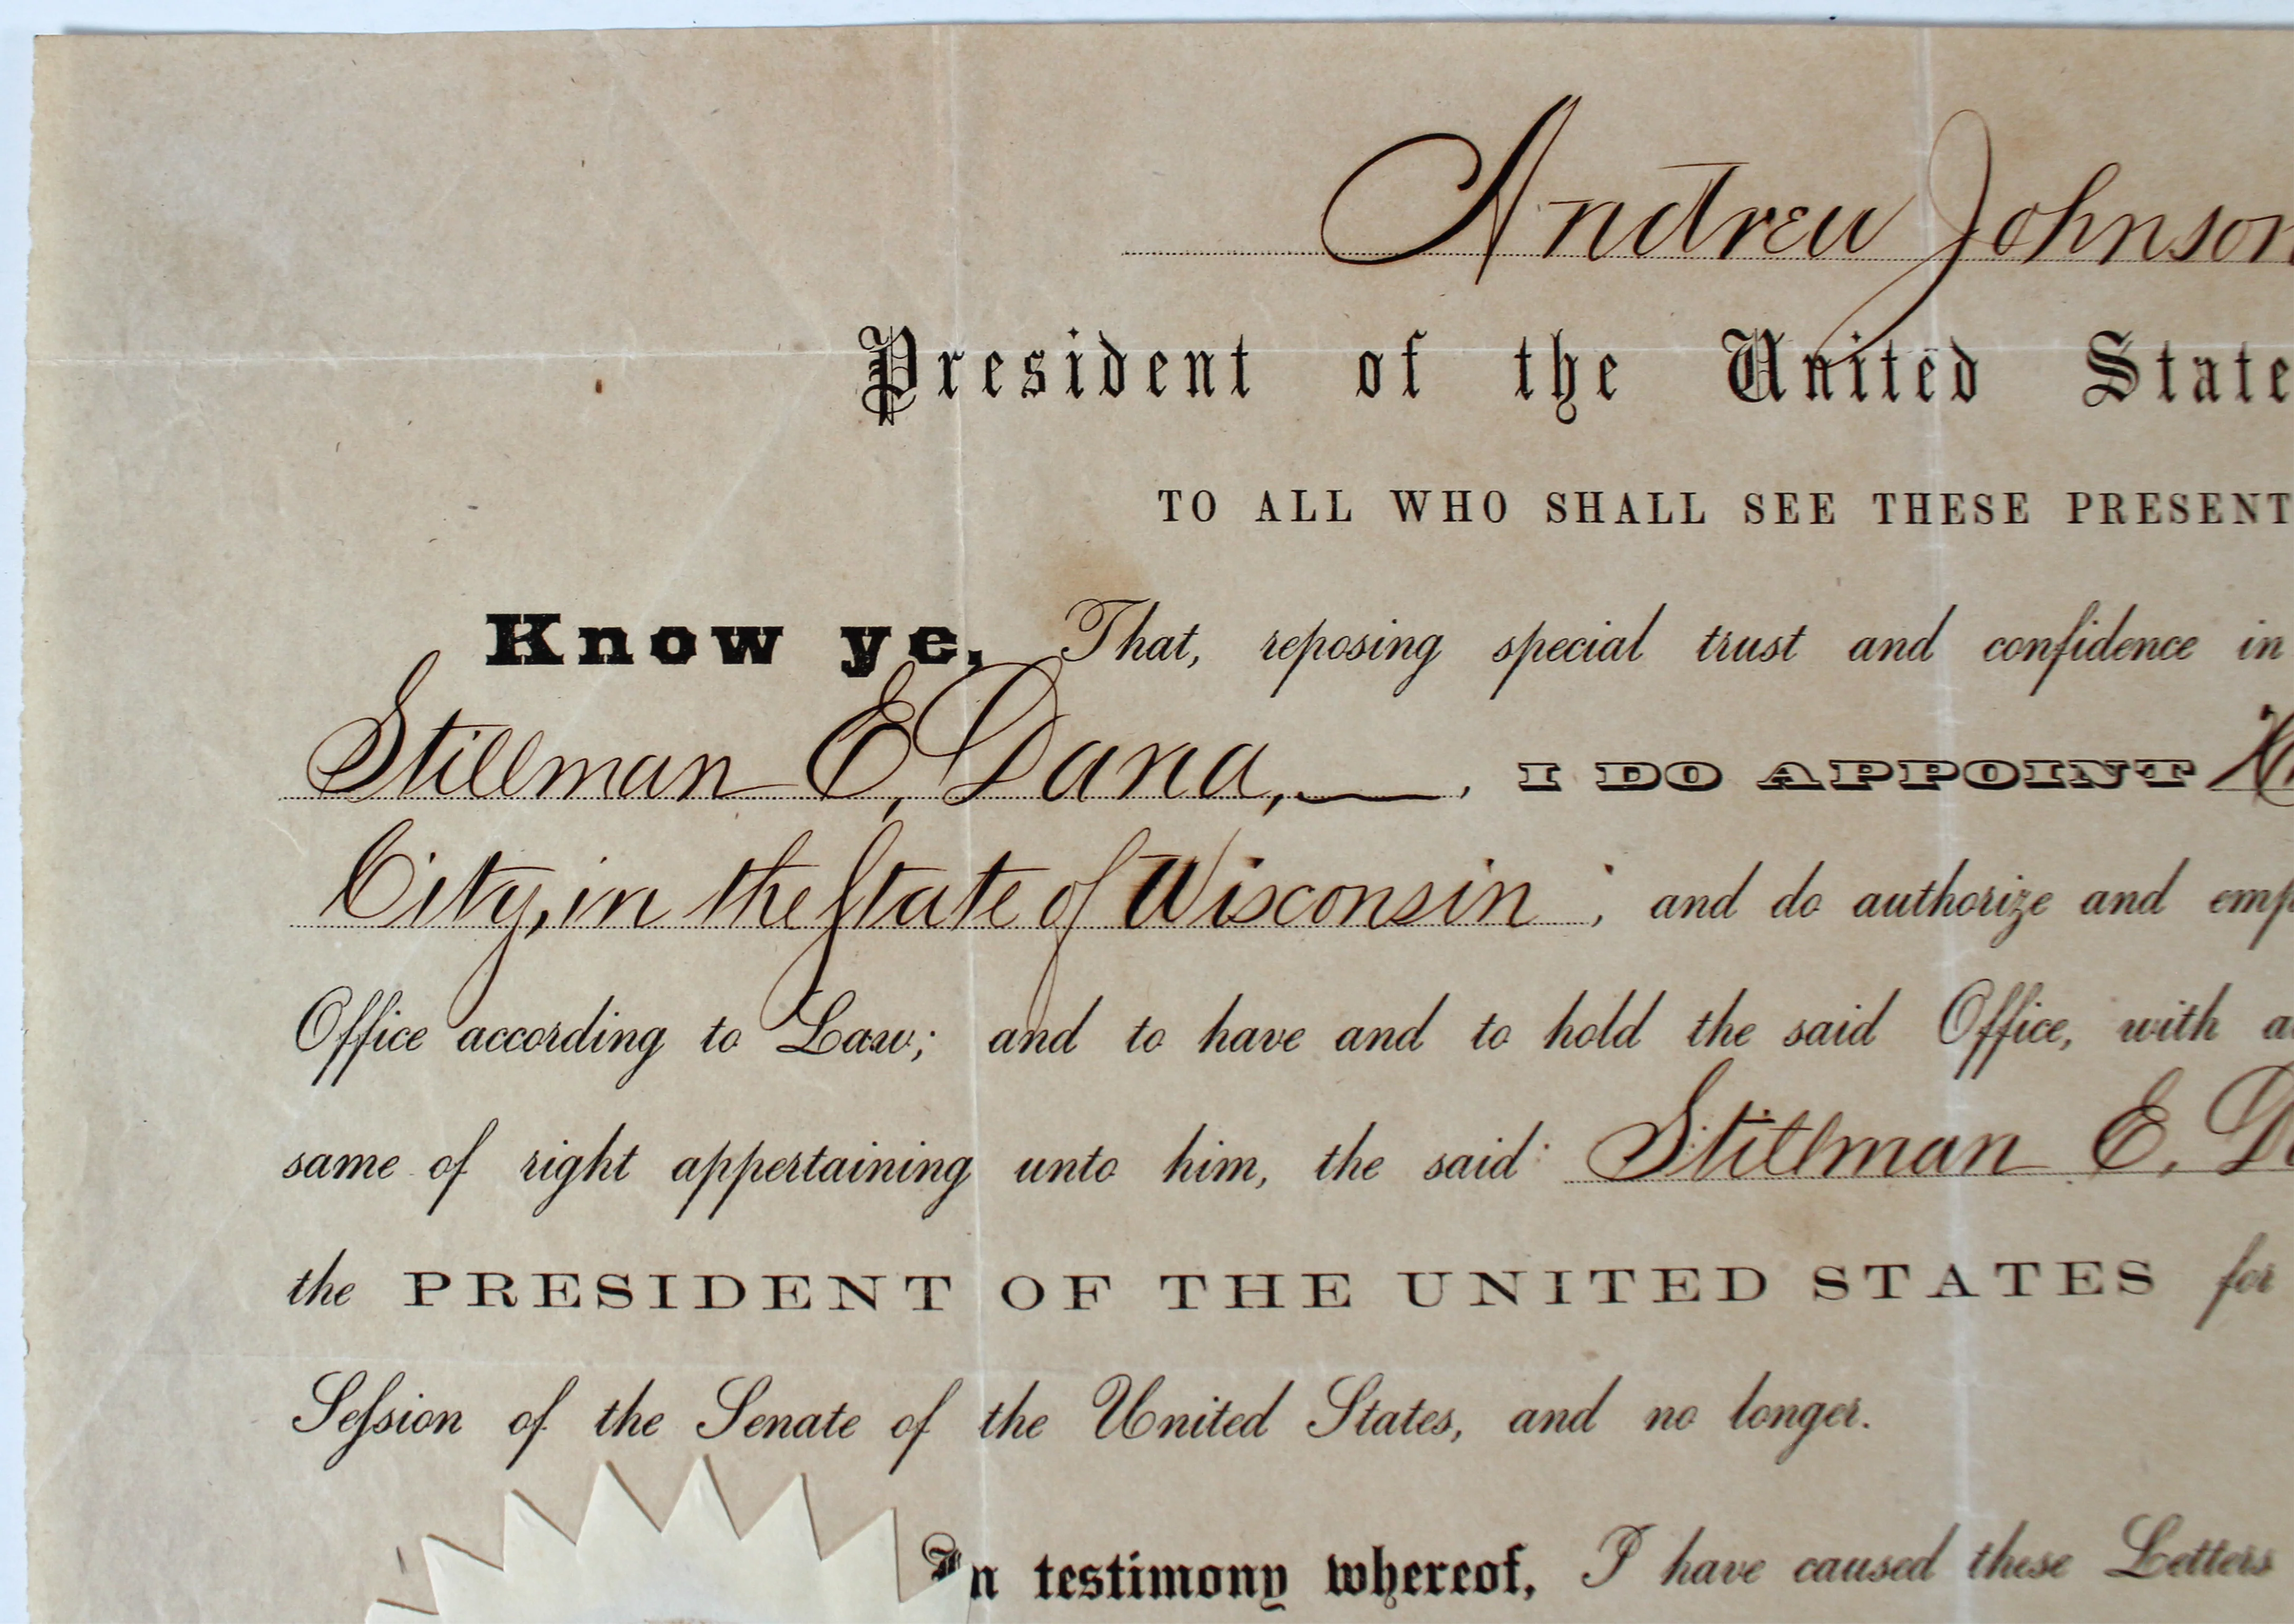 Andrew Johnson
President of the United State
TO ALL WHO SHALL SEE THESE PRESENT
Know ye, That, reposing special trust and confidence in
Stillman E. Dana, , I DO APPOINT
City, in the State of Wisconsin ; and do authorize and emp
Office according to Law; and to have and to hold the said Office, with a
same of right appertaining unto him, the said Stillman E. D
the PRESIDENT OF THE UNITED STATES for
Seſsion of the Senate of the United States, and no longer.
In testimony whereof, I have caused these Letters